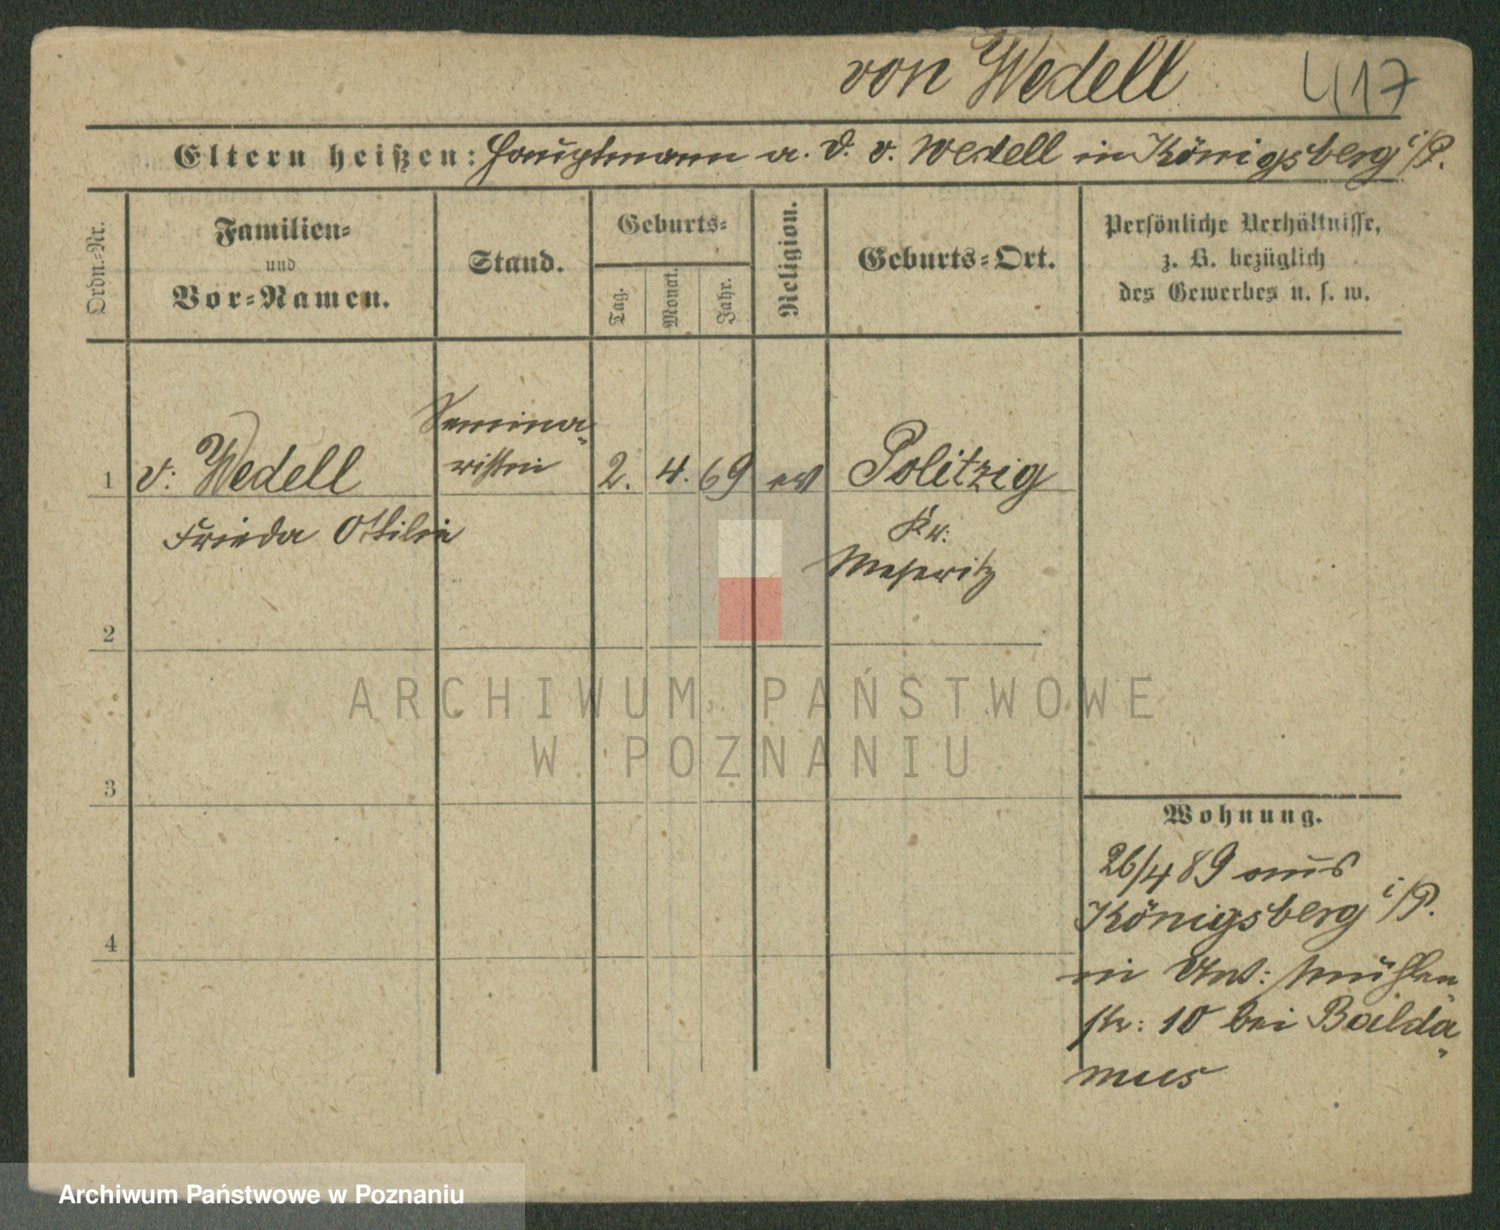 von Wedell 417
Eltern heißen: Hauptmann a. D. v. Wedell in Königsberg i/P.
Ordn.-Nr.
Familien-
und
Vor-Namen.
Stand.
Geburts-
Tag.
Monat.
Jahr.
Religion.
Geburts-Ort.
Persönliche Verhältnisse,
z. B. bezüglich
des Gewerbes u. s. w.
Semina-
ristin
1 v: Wedell 2. 4. 69 ev Politzig
Frieda Ottilie
Kr:
Meseritz
2
ARCHIWUM PAŃSTWOWE
W POZNANIU
3
Wohnung.
26/4 89 aus
Königsberg i/P.
in Unt: Mühlen
str: 10 bei Bailda-
mus
4
Archiwum Państwowe w Poznaniu